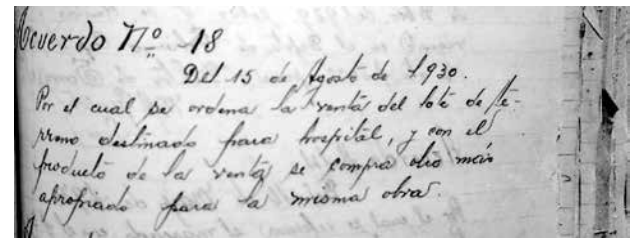 Acuerdo Nº 18
Del 15 de Agosto de 1.930.
Por el cual se ordena la venta del lote de te-
rreno destinado para hospital, y con el
producto de la venta se compra otro más
apropiado para la misma obra.